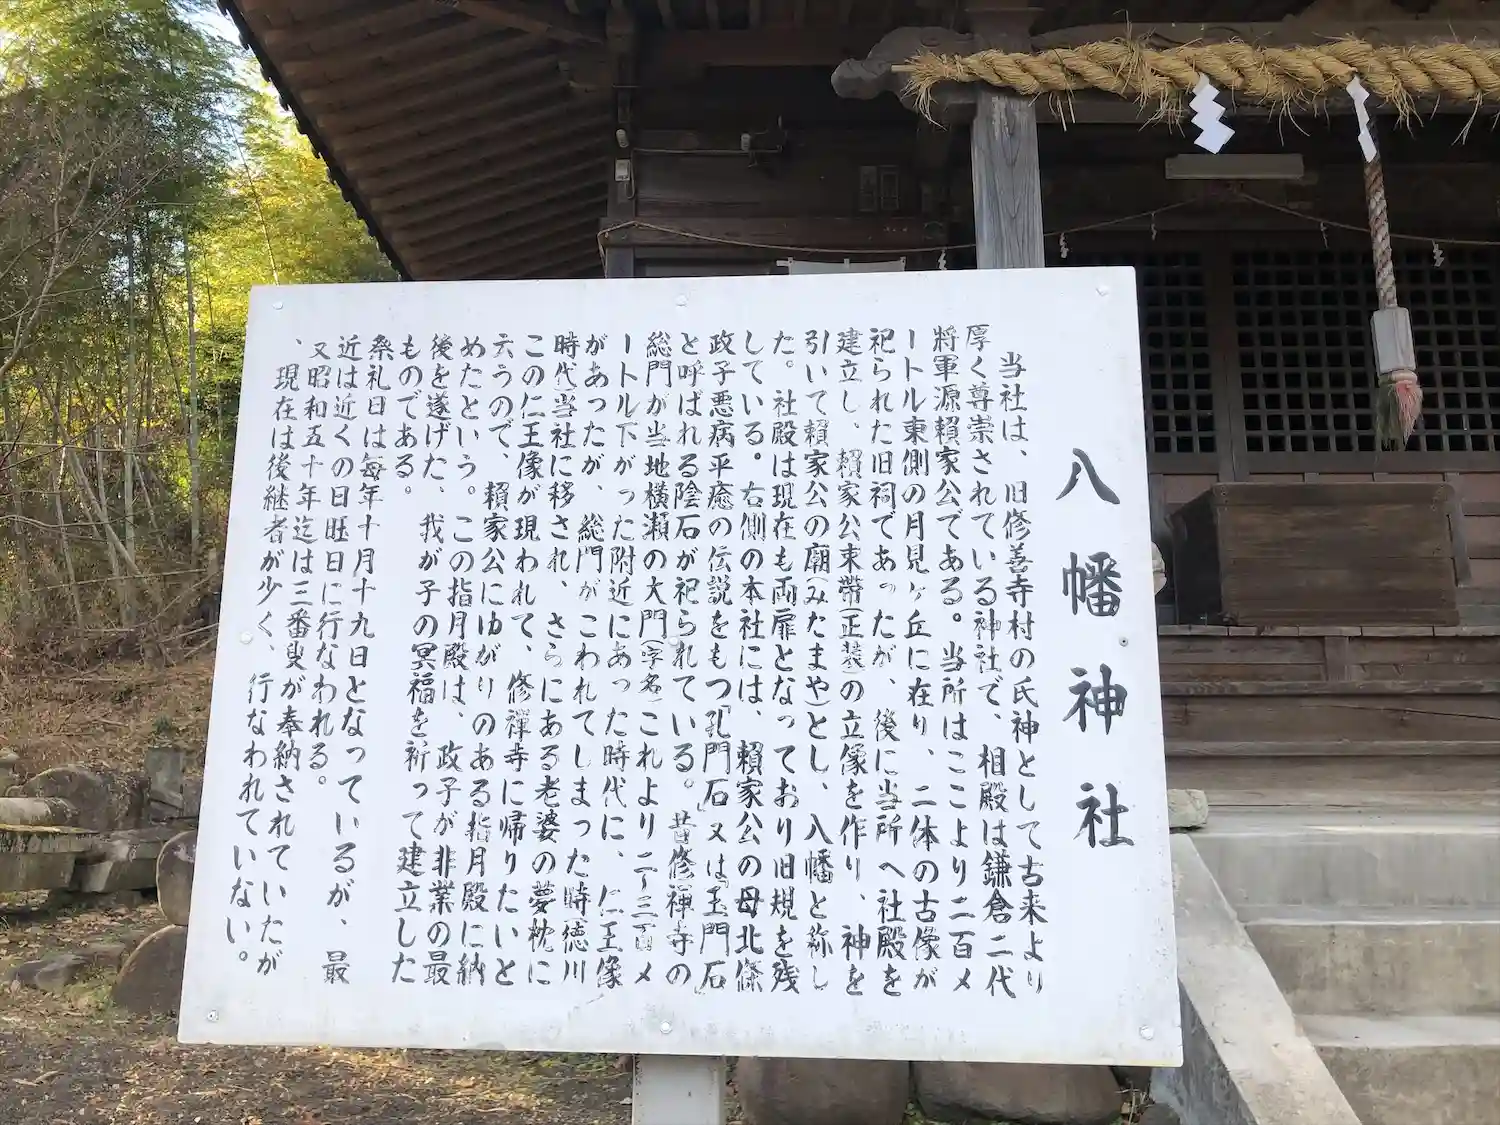 八幡神社
当社は、旧修善寺村の氏神として古来より
厚く尊崇されている神社で、相殿は鎌倉二代
將軍源賴家公である。当所はここより二百メ
ートル東側の月見ヶ丘に在り、二体の古像が
祀られた旧祠であったが、後に当所へ社殿を
建立し、賴家公束帶(正装)の立像を作り、神を
引いて賴家公の廟(みたまや)とし、八幡と称し
た。社殿は現在も両扉となっており旧規を残
している。右側の本社には、賴家公の母北條
政子悪病平癒の伝説をもつ「孔門石」又は「玉門石」
と呼ばれる陰石が祀られている。昔修禅寺の
総門が当地横瀬の大門(字名)これより二〜三百メ
ートル下がった附近にあった時代に、仁王像
があったが、総門がこわれてしまった時(徳川
時代)当社に移され、さらにある老婆の夢枕に
この仁王像が現われて、修禅寺に帰りたいと
云うので、賴家公にゆがりのある指月殿に納
めたという。この指月殿は、政子が非業の最
後を遂げた、我が子の冥福を祈って建立した
ものである。
祭礼日は毎年十月十九日となっているが、最
近は近くの日旺日に行なわれる。
又昭和五十年迄は三番叟が奉納されていたが
、現在は後継者が少く、行なわれていない。